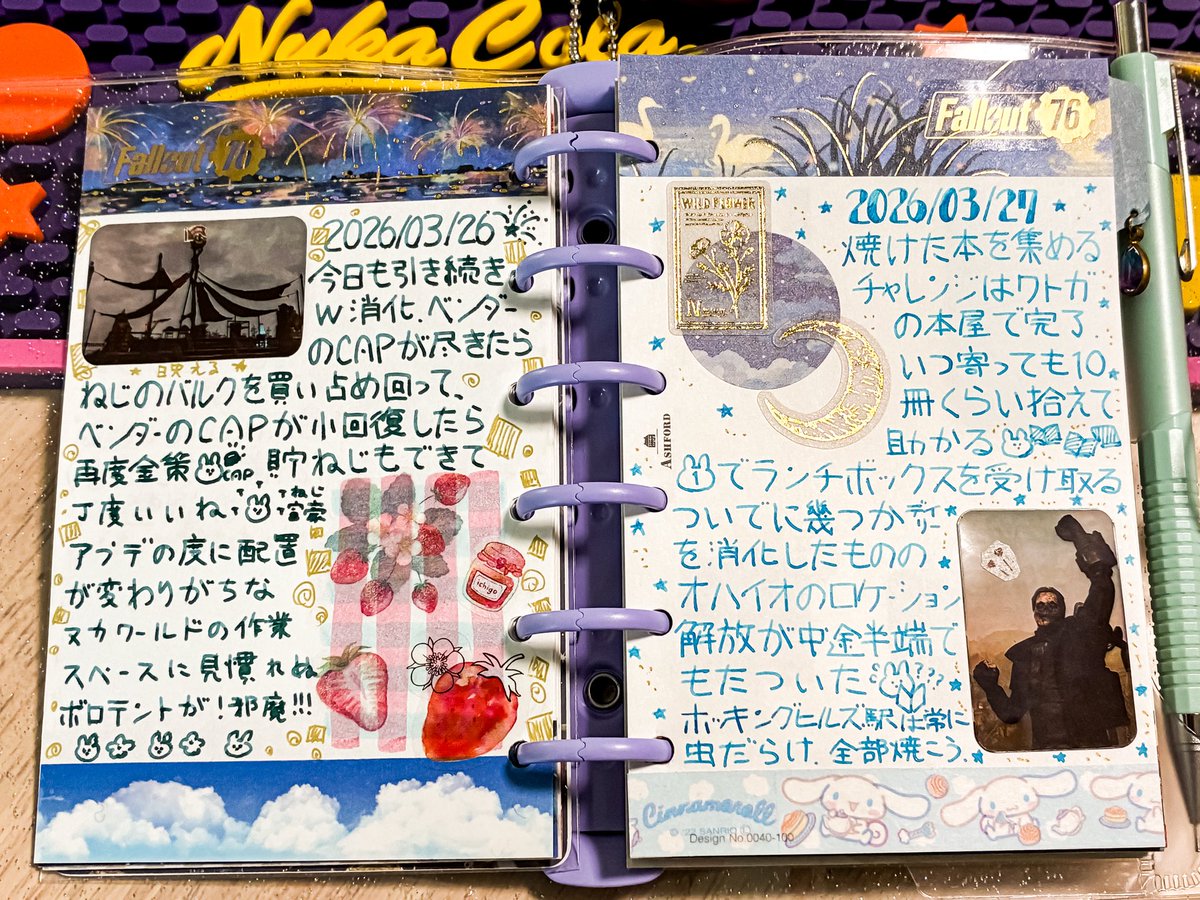 Nuka Cola
Fallout 76
2026/03/26
今日も引き続き
W消化、ベンダー
のCAPが尽きたら
映える
ねじのバルクを買い占め回って、
ベンダーのCAPが小回復したら
再度金策 CAP 貯ねじもできて
丁度いいね ねじ富豪
アプデの度に配置
が変わりがちな
ヌカワールドの作業
スペースに見慣れぬ
ボロテントが!邪魔!!!
ichigo
Fallout 76
WILD FLOWER
2026/03/27
焼けた本を集める
チャレンジはワトガ
の本屋で完了
いつ寄っても10
冊くらい拾えて
助かる
ASHFORD
1でランチボックスを受け取る
ついでに幾つかデイリー
を消化したものの
オハイオのロケーション
解放が中途半端で
もたついた ???
ホッキングヒルズ駅は常に
虫だらけ、全部焼こう、
Cinnamoroll
© '22 SANRIO
Design No.0040-100